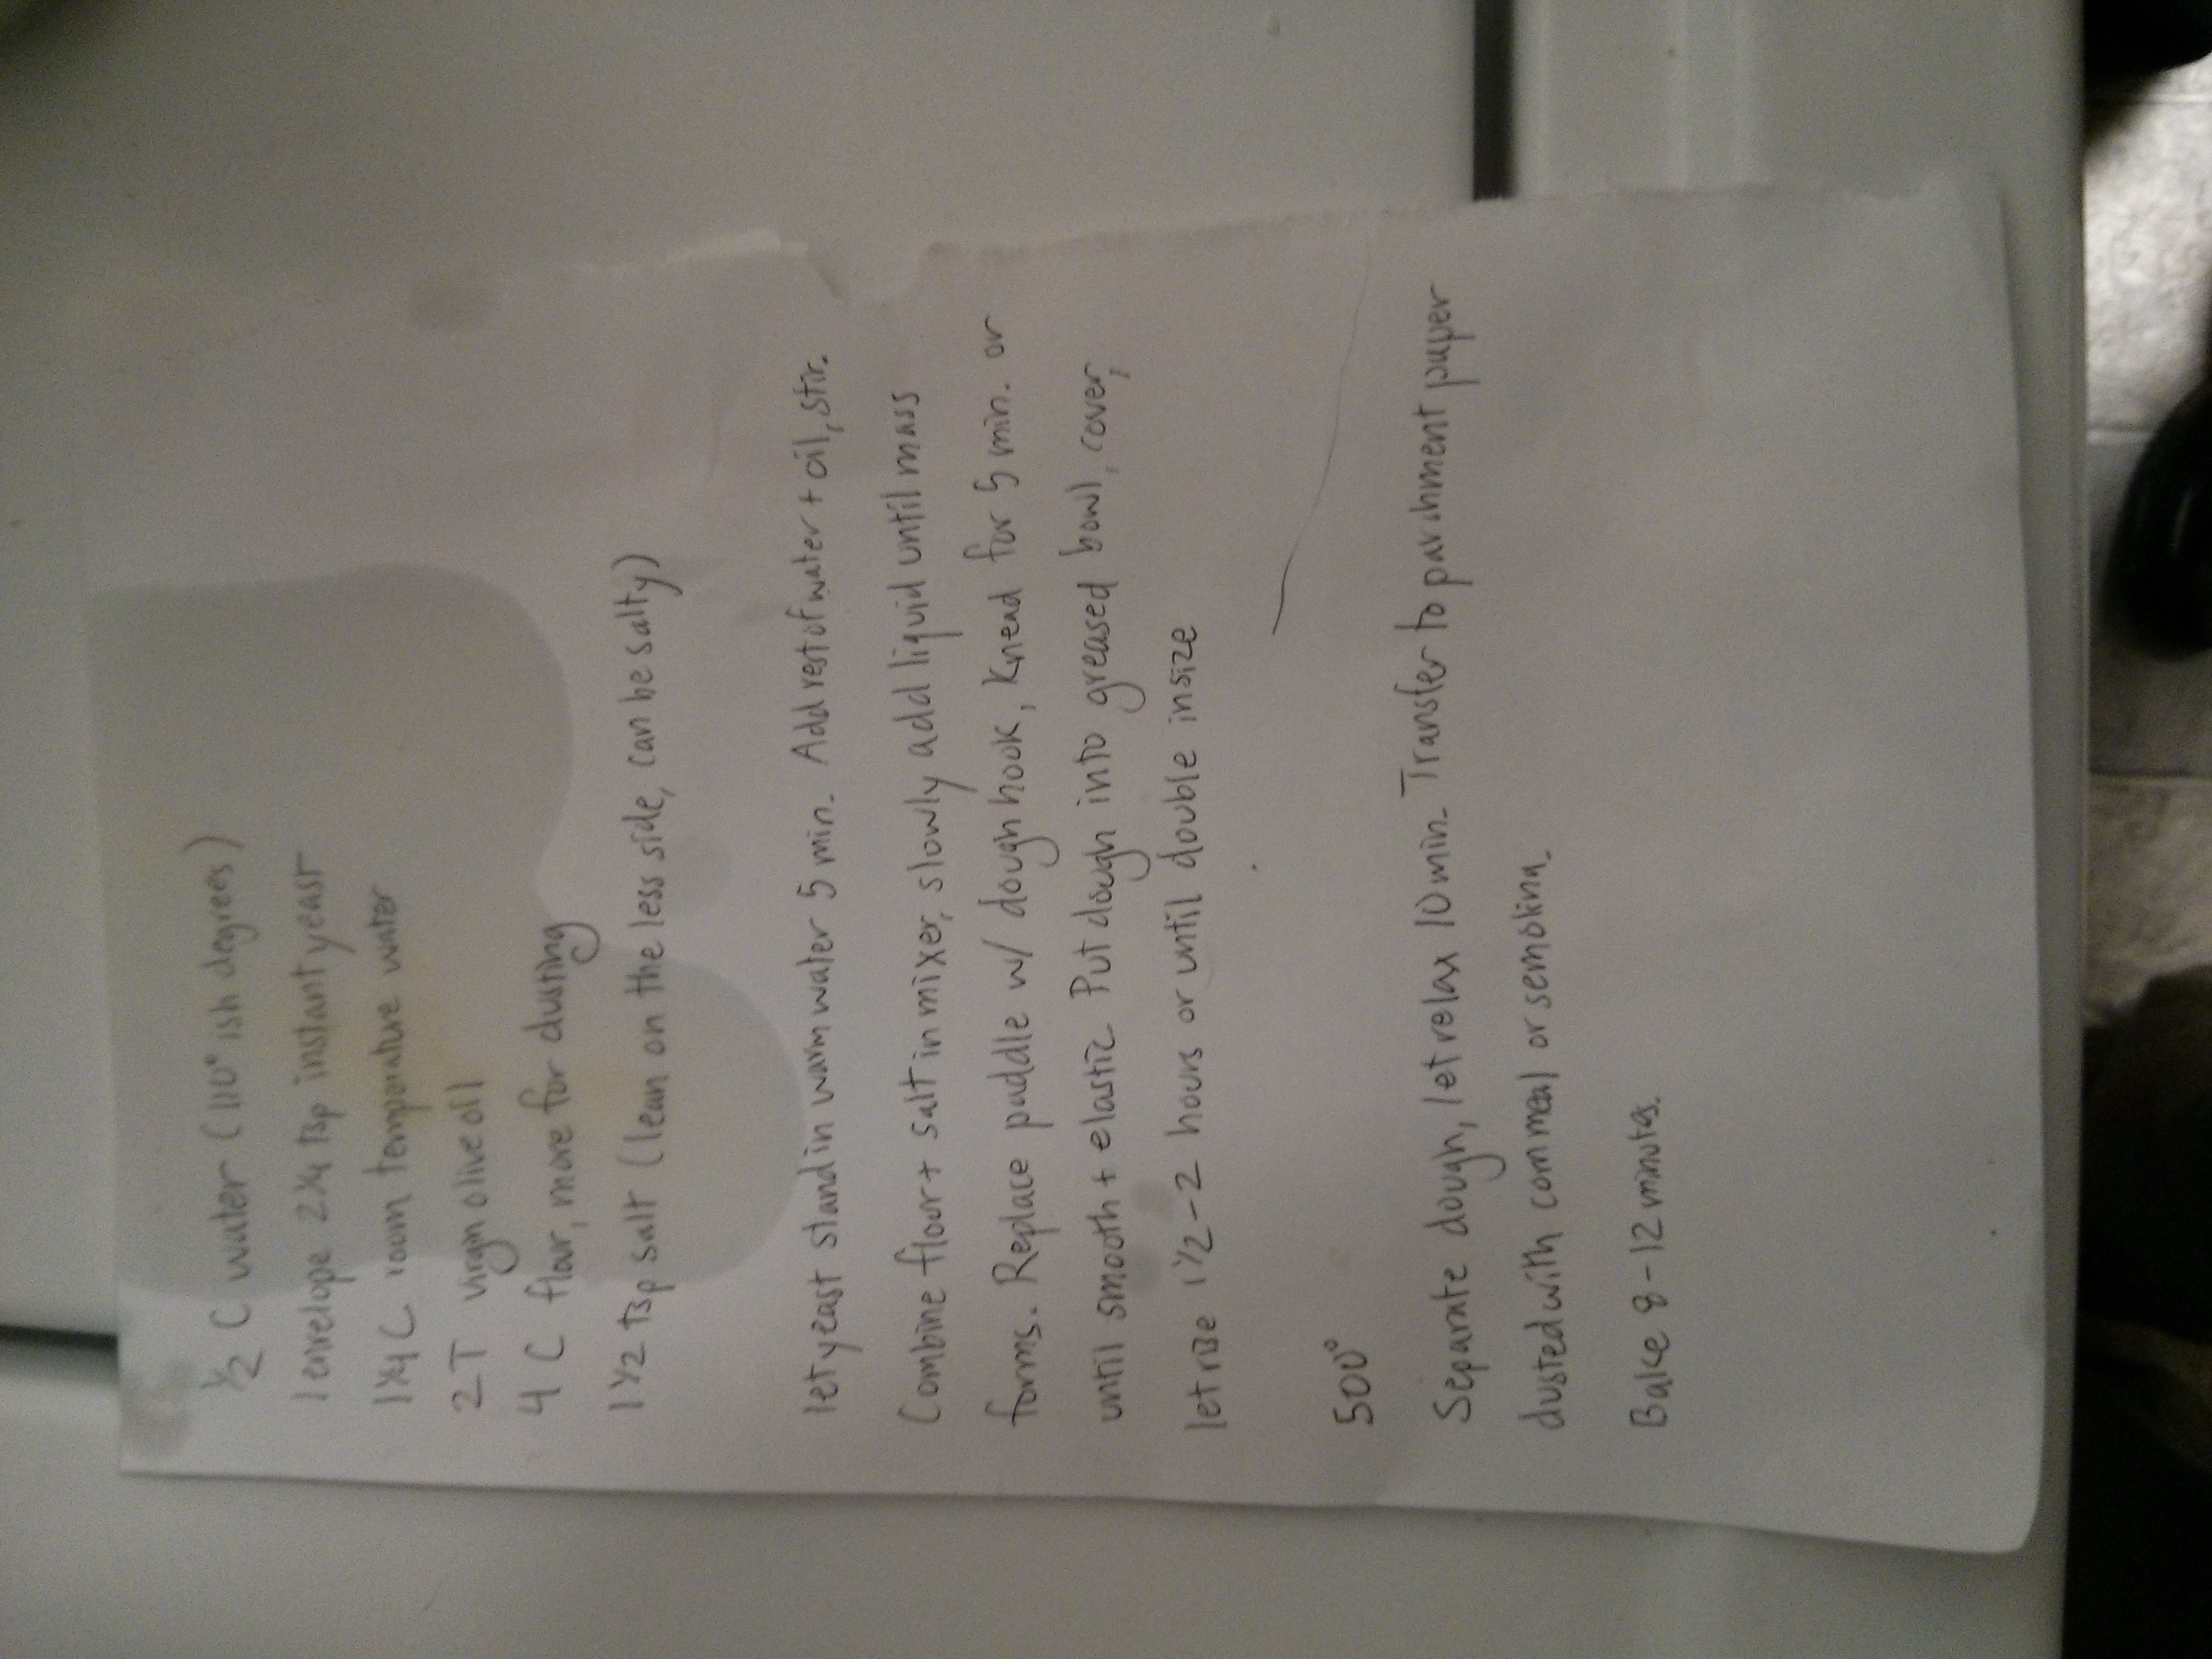 ½ C water (110° ish degrees)
1 envelope 2¼ tsp instant yeast
1¼ C room temperature water
2 T virgin olive oil
4 C flour, more for dusting
1½ tsp salt (lean on the less side, can be salty)
let yeast stand in warm water 5 min. Add rest of water + oil, stir.
Combine flour + salt in mixer, slowly add liquid until mass
forms. Replace paddle w/ dough hook, knead for 5 min. or
until smooth + elastic. Put dough into greased bowl, cover,
let rise 1½-2 hours or until double in size
500°
Separate dough, let relax 10 min. Transfer to parchment paper
dusted with cornmeal or semolina.
Bake 8-12 minutes.